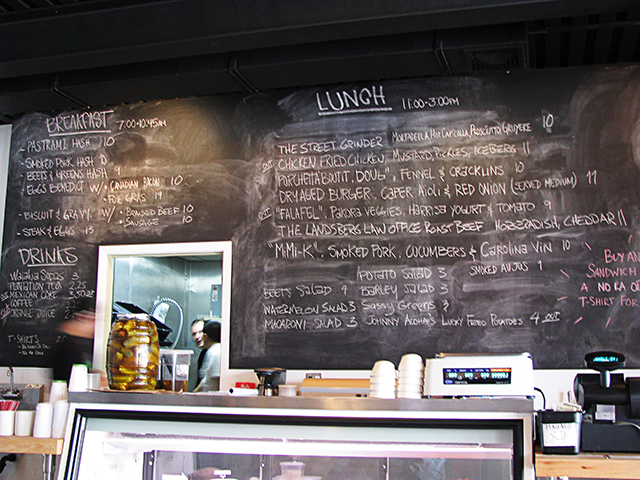 BREAKFAST 7:00-10:45AM
- PASTRAMI HASH 10
- SMOKED PORK HASH
- BEETS & GREENS HASH 9
- EGGS BENEDICT W/ • CANADIAN BACON 10
• FOIE GRAS 19
- BISCUIT & GRAVY W/ • BRAISED BEEF 10
• SAUSAGE 10
- STEAK & EGGS 13
DRINKS
WAIALUA SODAS 3
PLANTATION TEA 2.25
MEXICAN COKE 3.50
COFFEE
ORANGE JUICE
T-SHIRTS
LUNCH 11:00-3:00PM
THE STREET GRINDER MORTADELLA HOT CAPICOLLA PROSCIUTTO GRUYERE 10
OUT CHICKEN FRIED CHICKEN, MUSTARD, PICKLES, ICEBERG 11
PORCHETTA BOUTIT, DOUG", FENNEL & CRACKLINS 10
DRY AGED BURGER, CAPER AIOLI & RED ONION (SERVED MEDIUM) 11
OUT "FALAFEL", PAKORA VEGGIES, HARRISA YOGURT & TOMATO 9
THE LANDSBERG LAW OFFICE ROAST BEEF HORSERADISH, CHEDDAR 11
"MIMI-K", SMOKED PORK, CUCUMBERS & CAROLINA VIN 10
SMOKED AU JUS 1
POTATO SALAD 3
BEETS SALAD 9 BARLEY SALAD 3
WATERMELON SALAD 3 SASSY GREENS 3
MACARONI SALAD 3 JOHNNY ALOHA'S LUCKY FRIED POTATOES 4 OUT
BUY AN
SANDWICH
A NO KA OI
T-SHIRT FOR